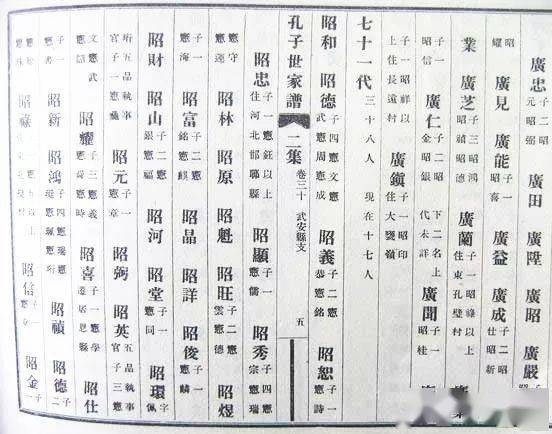 廣忠 元昭昭弼 廣田 廣陞 廣昭 廣嚴
昭耀 廣見 廣能 子一昭喜 廣益 廣成 子二昭仕昭新
業 廣芝 子三昭鴻昭禎昭德 廣蘭 子一昭祿以上住東孔壁村
子一昭信 廣仁 金昭銀 下二名上代未詳 廣開 子一昭桂
子一昭祥以上住長遠村 廣鎮 子一昭印住大甕嶺
七十一代 三十八人 現在十七人
昭和 昭德 子四憲文憲武憲周憲成 昭義 子二憲恭憲銘 昭恕 子一憲詩
孔子世家譜 二集 卷三十 武安縣支 五
昭忠 子一憲鈺以上住河北邯鄲縣 昭顯 子一憲儒 昭秀 子四憲宗憲瑞
憲守憲蓮 昭林 昭原 昭魁 昭旺 子二憲雲憲德 昭煜
子一憲海 昭富 子二憲銘憲麒 昭晶 昭詳 昭俊 子一憲麟
昭財 昭山 子二憲銀憲福 昭河 昭堂 子一憲同 昭環 字佩
珩五品執事官子一憲 昭元 子一憲章 昭弼 昭英 五品執事官子三憲
文憲武憲 昭耀 子三憲義憲憲時 昭喜 子一憲學遷居恩縣 昭仕
子一憲書 昭新 昭鴻 子四憲瑞憲珽憲珮憲珩 昭禎 昭德 子二
憲珍憲珠 昭祿 昭信 子一憲章 昭金 子一